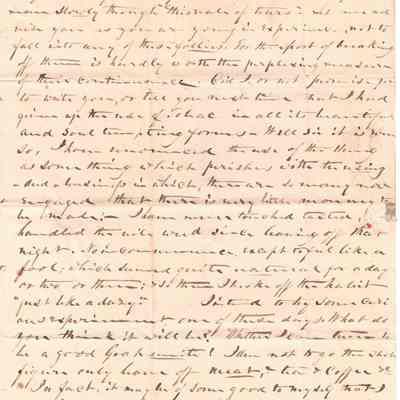 more slowly through this vale of tears
with you as you are young in experience, not to
fall into any of these follies. for the sport of breaking
off them is hardly worth the perplexing measure
of their continuance. Did I or not promise you
to write you, or tell you next time that I had
given up the use of tobac in all its beautiful
and soul tempting forms - Well Sir it is even
so, I have renounced the use of the thing
as something which perishes with the using
and a business in which there are so many now
engaged that there is very little money to
be made; - I have never touched tasted, or
handled the vile weed since leaving off that
night. No inconvenience except to feel like a
fool; which seemed quite natural for a day
or two or three; & I then I broke off the habit
"just like a daisy" I intend to try some
an experiment one of these days. What do
you think it will be? Whether I can turn to
be a good Grahamite! I then not to go the whole
figure only leave off meat, & tea & Coffee &c
In fact, it may be of some good to myself that I